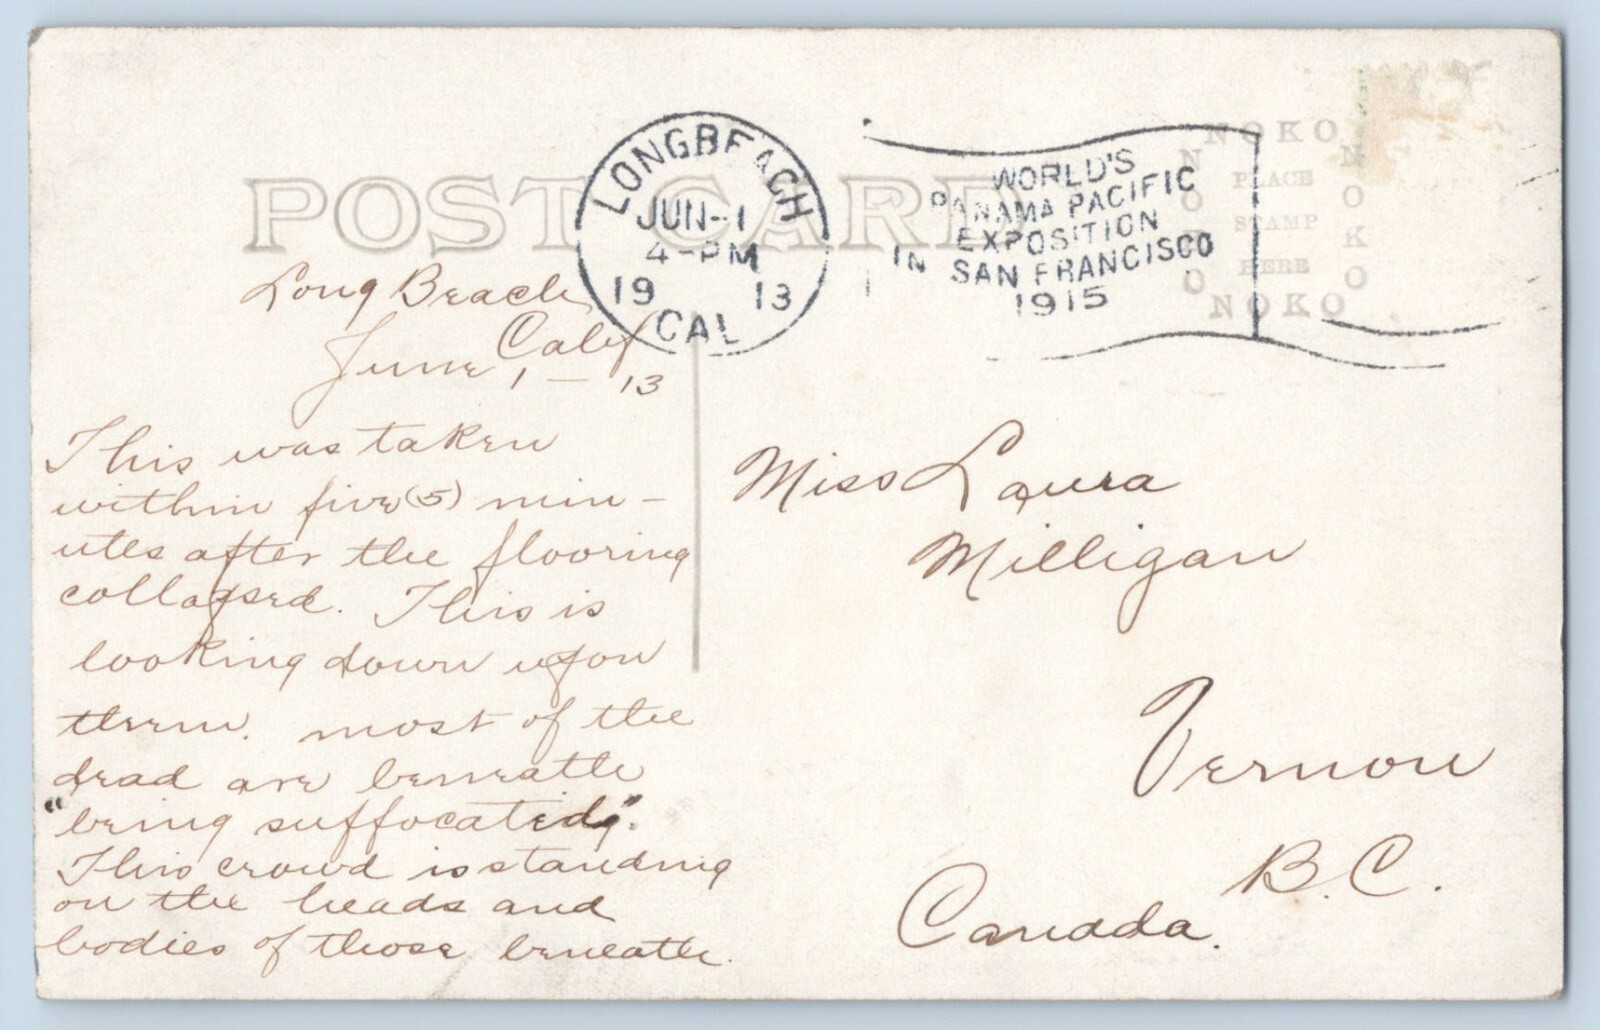 POST CARD
LONG BEACH
JUN-1
4-PM
19 13
CAL
WORLD'S
PANAMA PACIFIC
EXPOSITION
IN SAN FRANCISCO
1915
NOKO
NOKO
NOKO
NOKO
PLACE
STAMP
HERE
Long Beach
Calif
June 1 - 13
This was taken
within five (5) min-
utes after the flooring
collapsed. This is
looking down upon
them. most of the
dead are beneath
"being suffocated".
This crowd is standing
on the heads and
bodies of those beneath.
Miss Laura
Milligan
Vernon
B.C.
Canada.